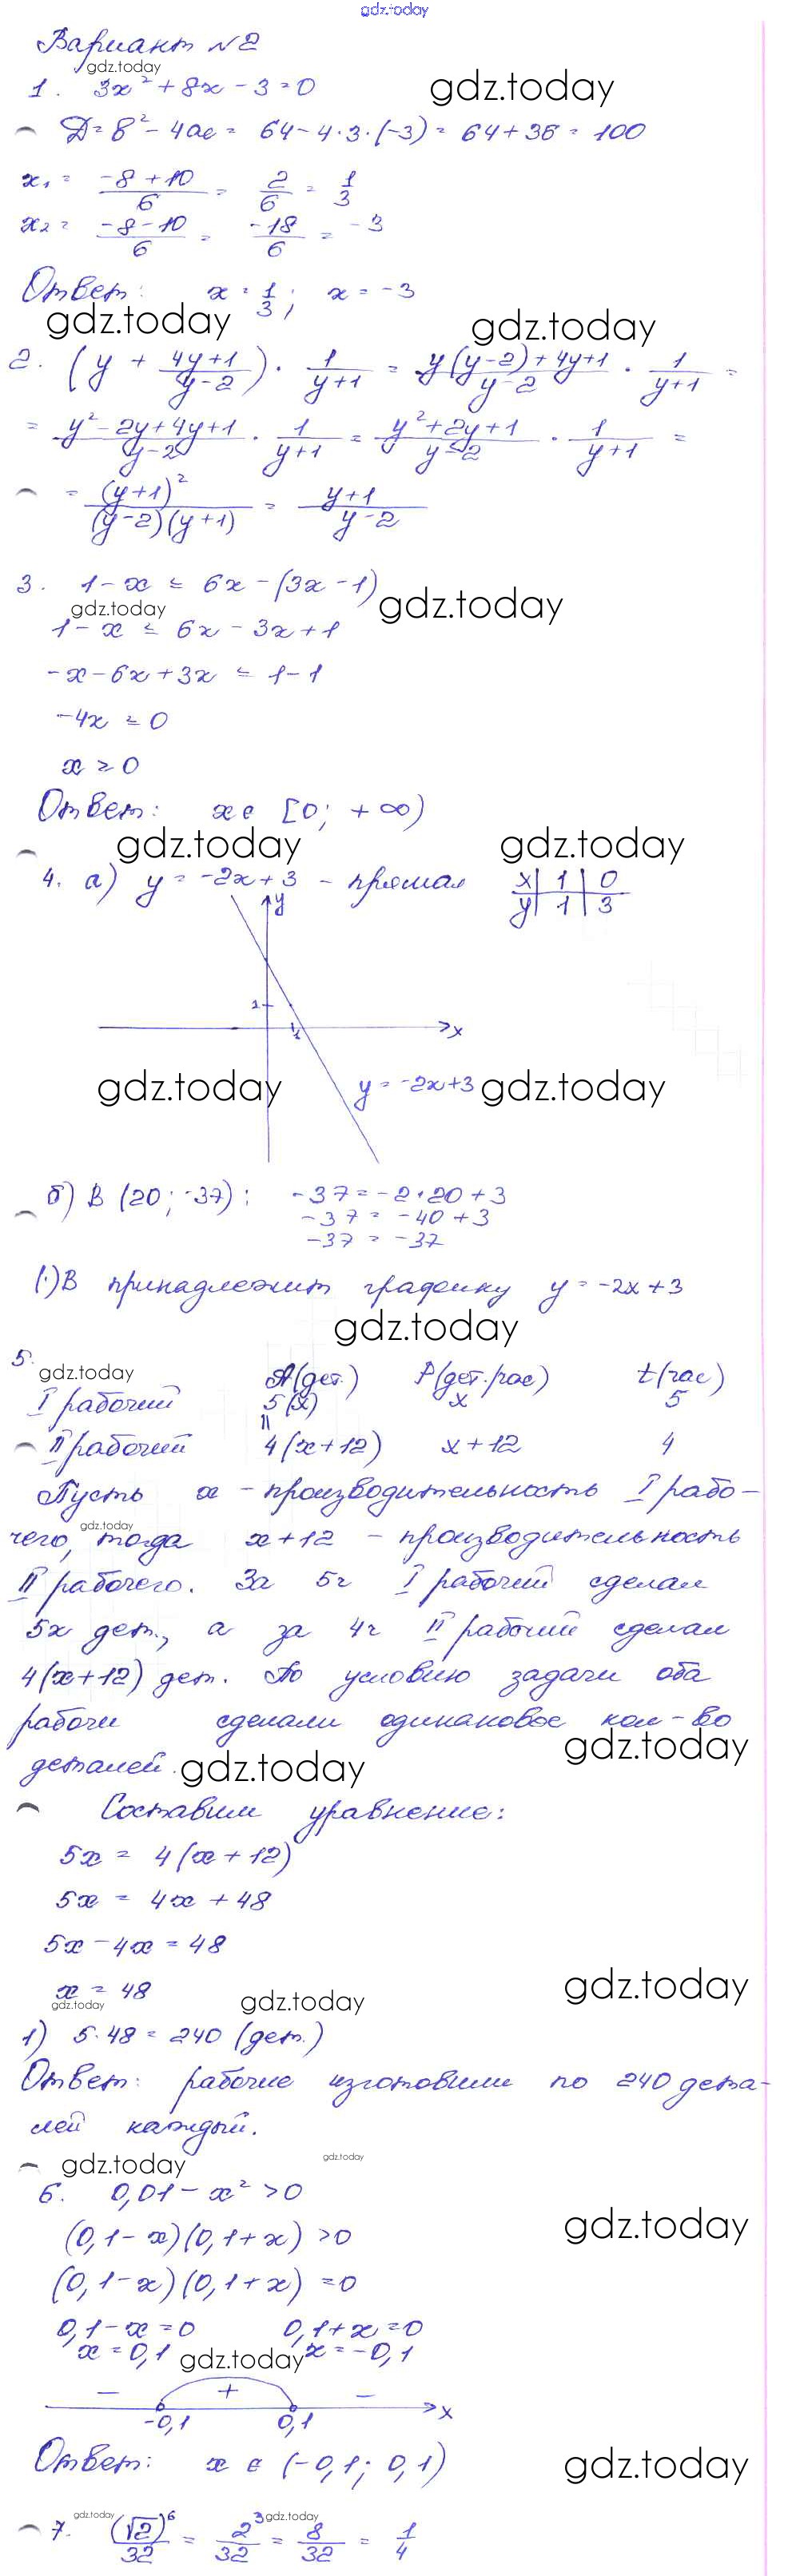 gdz.today
Вариант №2
gdz.today
1. 3x² + 8x - 3 = 0 gdz.today
D = 8² - 4ac = 64 - 4·3·(-3) = 64 + 36 = 100
x₁ = (-8+10)/6 = 2/6 = 1/3
x₂ = (-8-10)/6 = -18/6 = -3
Ответ: x = 1/3; x = -3
gdz.today gdz.today
2. (y + (4y+1)/(y-2)) · 1/(y+1) = (y(y-2)+4y+1)/(y-2) · 1/(y+1) =
= (y²-2y+4y+1)/(y-2) · 1/(y+1) = (y²+2y+1)/(y-2) · 1/(y+1) =
= (y+1)²/((y-2)(y+1)) = (y+1)/(y-2)
3. 1-x ≤ 6x-(3x-1)
gdz.today gdz.today
1-x ≤ 6x-3x+1
-x-6x+3x ≤ 1-1
-4x ≤ 0
x ≥ 0
Ответ: x ∈ [0; +∞)
gdz.today gdz.today
4. а) y = -2x+3 - прямая x 1 0
y 1 3
y
1
1 x
gdz.today y = -2x+3 gdz.today
б) B (20; -37): -37 = -2·20+3
-37 = -40+3
-37 = -37
(·)B принадлежит графику y = -2x+3
gdz.today
5.
gdz.today A(дет.) P(дет.рас) t(час)
I рабочий 5(x) x 5
॥
II рабочий 4(x+12) x+12 4
Пусть x - производительность I рабо-
gdz.today
чего, тогда x+12 - производительность
II рабочего. За 5ч I рабочий сделал
5x дет., а за 4ч II рабочий сделал
4(x+12) дет. По условию задачи оба
рабочи сделали одинаковое кол-во
gdz.today
деталей. gdz.today
Составим уравнение:
5x = 4(x+12)
5x = 4x+48
5x-4x = 48
x = 48 gdz.today
gdz.today gdz.today
1) 5·48 = 240 (дет.)
Ответ: рабочие изготовили по 240 дета-
лей каждый.
gdz.today gdz.today
6. 0,01-x² > 0
gdz.today
(0,1-x)(0,1+x) > 0
(0,1-x)(0,1+x) = 0
0,1-x = 0 0,1+x = 0
x = 0,1 gdz.today x = -0,1
- + -
-0,1 0,1 x
Ответ: x ∈ (-0,1; 0,1) gdz.today
gdz.today gdz.today
7. (√2)⁶/32 = 2³/32 = 8/32 = 1/4